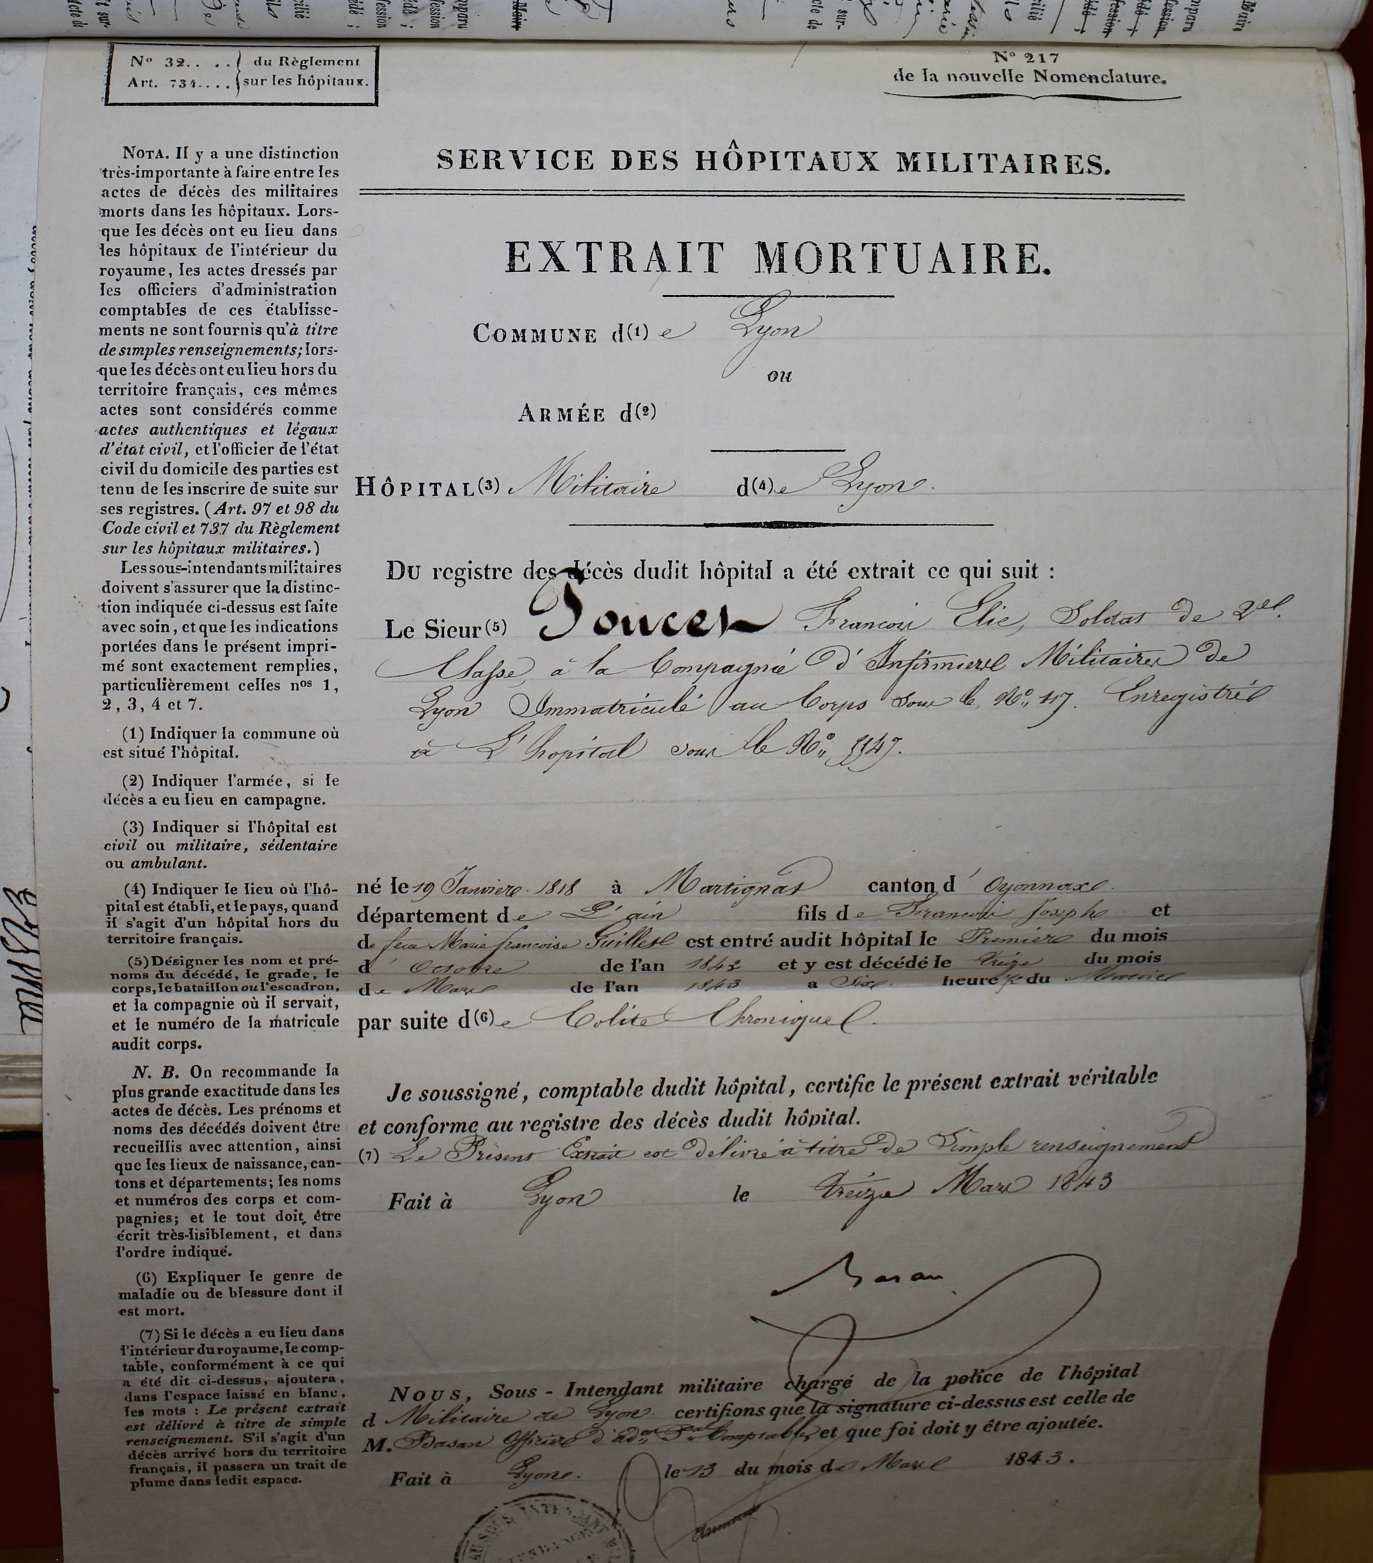 No 32.. . . du Règlement
Art. 734.... sur les hôpitaux.
No 217
de la nouvelle Nomenclature.
SERVICE DES HÔPITAUX MILITAIRES.
EXTRAIT MORTUAIRE.
COMMUNE d(1) e Lyon
ou
ARMÉE d(2)
HÔPITAL(3) Militaire d(4) e Lyon.
DU registre des décès dudit hôpital a été extrait ce qui suit :
Le Sieur (5) Poncet François Elie, Soldat de 2e
Classe, à la Compagnie d'Infirmiers Militaires de
Lyon Immatriculé au Corps sous le No 117. Enregistré
à L'hopital sous le No 1147.
né le 19 Janvier 1818 à Martignat canton d' Oyonnax
département de L'ain fils de François Joseph et
de feu Marie françoise Guillet est entré audit hôpital le Premier du mois
d' Octobre de l'an 1842 et y est décédé le treize du mois
de Mars de l'an 1843 a Six heure du Matin
par suite d(6) e Colite Chronique.
Je soussigné, comptable dudit hôpital, certifie le présent extrait véritable
et conforme au registre des décès dudit hôpital.
(7) Le Présent Extrait est délivré à titre de Simple renseignement
Fait à Lyon le treize Mars 1843
Basan
NOUS, Sous-Intendant militaire chargé de la police de l'hôpital
d Militaire de Lyon certifions que la signature ci-dessus est celle de
M. Basan Officier d'adon Pal Comptable, et que foi doit y être ajoutée.
Fait à Lyon. le 13 du mois de Mars 1843.
NOTA. Il y a une distinction
très-importante à faire entre les
actes de décès des militaires
morts dans les hôpitaux. Lors-
que les décès ont eu lieu dans
les hôpitaux de l'intérieur du
royaume, les actes dressés par
les officiers d'administration
comptables de ces établisse-
ments ne sont fournis qu'à titre
de simples renseignements; lors-
que les décès ont eu lieu hors du
territoire français, ces mêmes
actes sont considérés comme
actes authentiques et légaux
d'état civil, et l'officier de l'état
civil du domicile des parties est
tenu de les inscrire de suite sur
ses registres. (Art. 97 et 98 du
Code civil et 737 du Règlement
sur les hôpitaux militaires.)
Les sous-intendants militaires
doivent s'assurer que la distinc-
tion indiquée ci-dessus est faite
avec soin, et que les indications
portées dans le présent impri-
mé sont exactement remplies,
particulièrement celles nos 1,
2, 3, 4 et 7.
(1) Indiquer la commune où
est situé l'hôpital.
(2) Indiquer l'armée, si le
décès a eu lieu en campagne.
(3) Indiquer si l'hôpital est
civil ou militaire, sédentaire
ou ambulant.
(4) Indiquer le lieu où l'hô-
pital est établi, et le pays, quand
il s'agit d'un hôpital hors du
territoire français.
(5) Désigner les nom et pré-
noms du décédé, le grade, le
corps, le bataillon ou l'escadron,
et la compagnie où il servait,
et le numéro de la matricule
audit corps.
N. B. On recommande la
plus grande exactitude dans les
actes de décès. Les prénoms et
noms des décédés doivent être
recueillis avec attention, ainsi
que les lieux de naissance, can-
tons et départements; les noms
et numéros des corps et com-
pagnies; et le tout doit être
écrit très-lisiblement, et dans
l'ordre indiqué.
(6) Expliquer le genre de
maladie ou de blessure dont il
est mort.
(7) Si le décès a eu lieu dans
l'intérieur du royaume, le comp-
table, conformément à ce qui
a été dit ci-dessus, ajoutera,
dans l'espace laissé en blanc,
les mots : Le présent extrait
est délivré à titre de simple
renseignement. S'il s'agit d'un
décès arrivé hors du territoire
français, il passera un trait de
plume dans ledit espace.